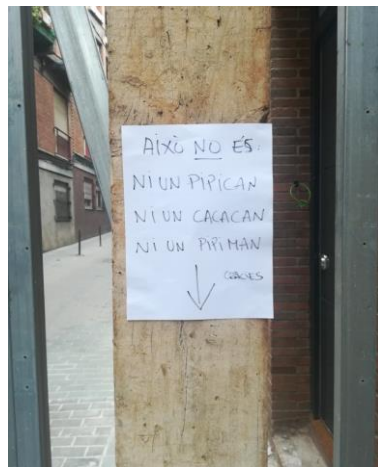 AIXÒ NO ÉS:
NI UN PIPICAN
NI UN CACACAN
NI UN PIPIMAN
GRÀCIES